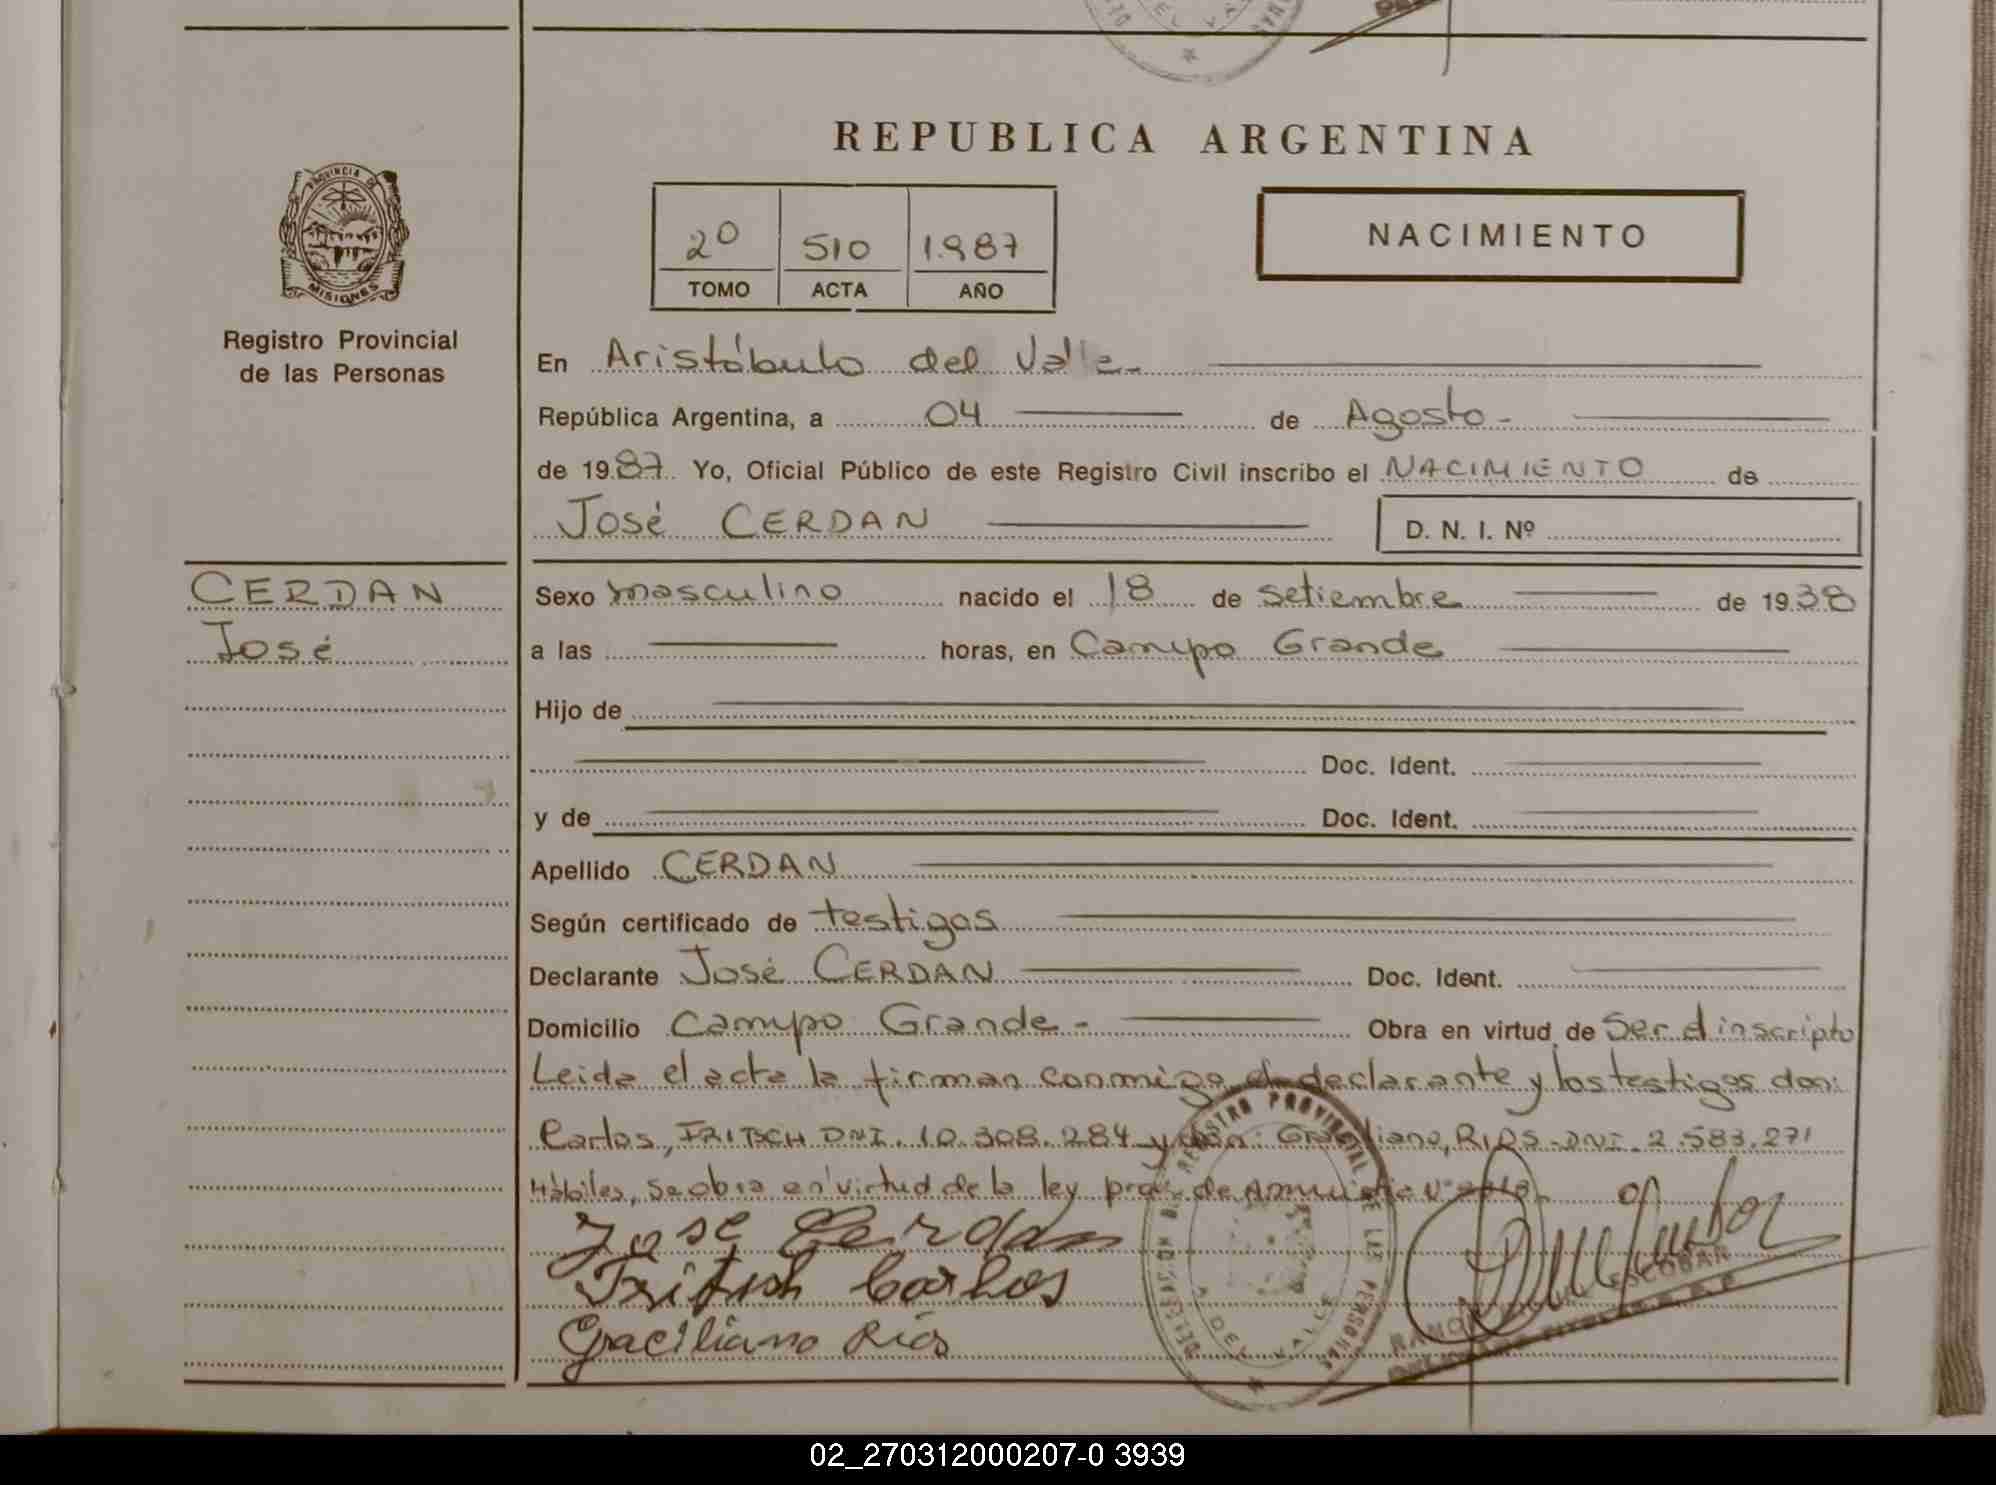 REPUBLICA ARGENTINA
PROVINCIA DE
MISIONES
Registro Provincial
de las Personas
2º 510 1.987
TOMO ACTA AÑO
NACIMIENTO
En Aristóbulo del Valle.-
República Argentina, a 04 de Agosto-
de 1987. Yo, Oficial Público de este Registro Civil inscribo el NACIMIENTO de
José CERDAN D. N. I. Nº
CERDAN
José
Sexo masculino nacido el 18 de setiembre de 1938
a las horas, en Campo Grande
Hijo de
Doc. Ident.
y de Doc. Ident.
Apellido CERDAN
Según certificado de testigos
Declarante José CERDAN Doc. Ident.
Domicilio Campo Grande- Obra en virtud de Ser el inscripto
Leida el acta la firman conmigo el declarante y los testigos don:
Carlos, FRITSCH DNI. 10.308.284 y don: Graciliano, RIOS-DNI. 2.583.271
Hábiles, se obra en virtud de la ley prov. de Amnistia Nº
Jose Cerdan
Fritsch Carlos
Graciliano Ríos
REGISTRO PROVINCIAL DE LAS PERSONAS
DELEGACION
A. DEL VALLE
ESCOBAR
02_270312000207-0 3939